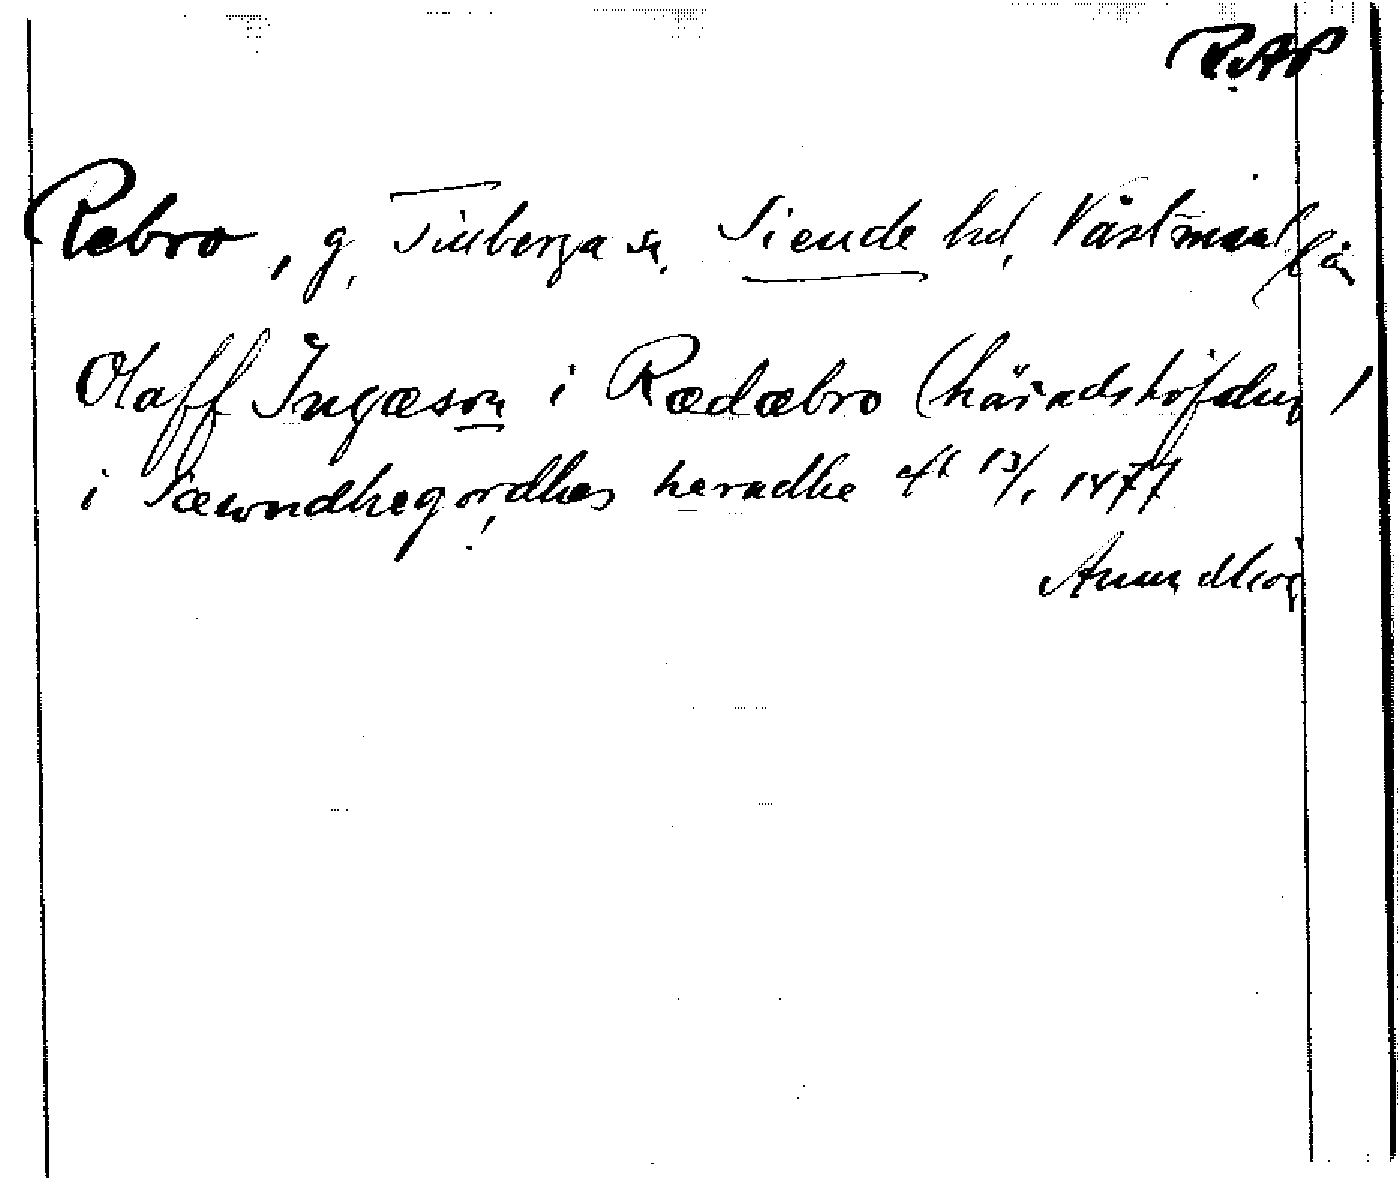 RAP
Rebro, g. Tillberga sn. Siende hd, Västmanl län
Olaff Ingæson i Rædæbro (häradshöfding)
i Sæwndhegordhes heradhe afl 13/1 1477